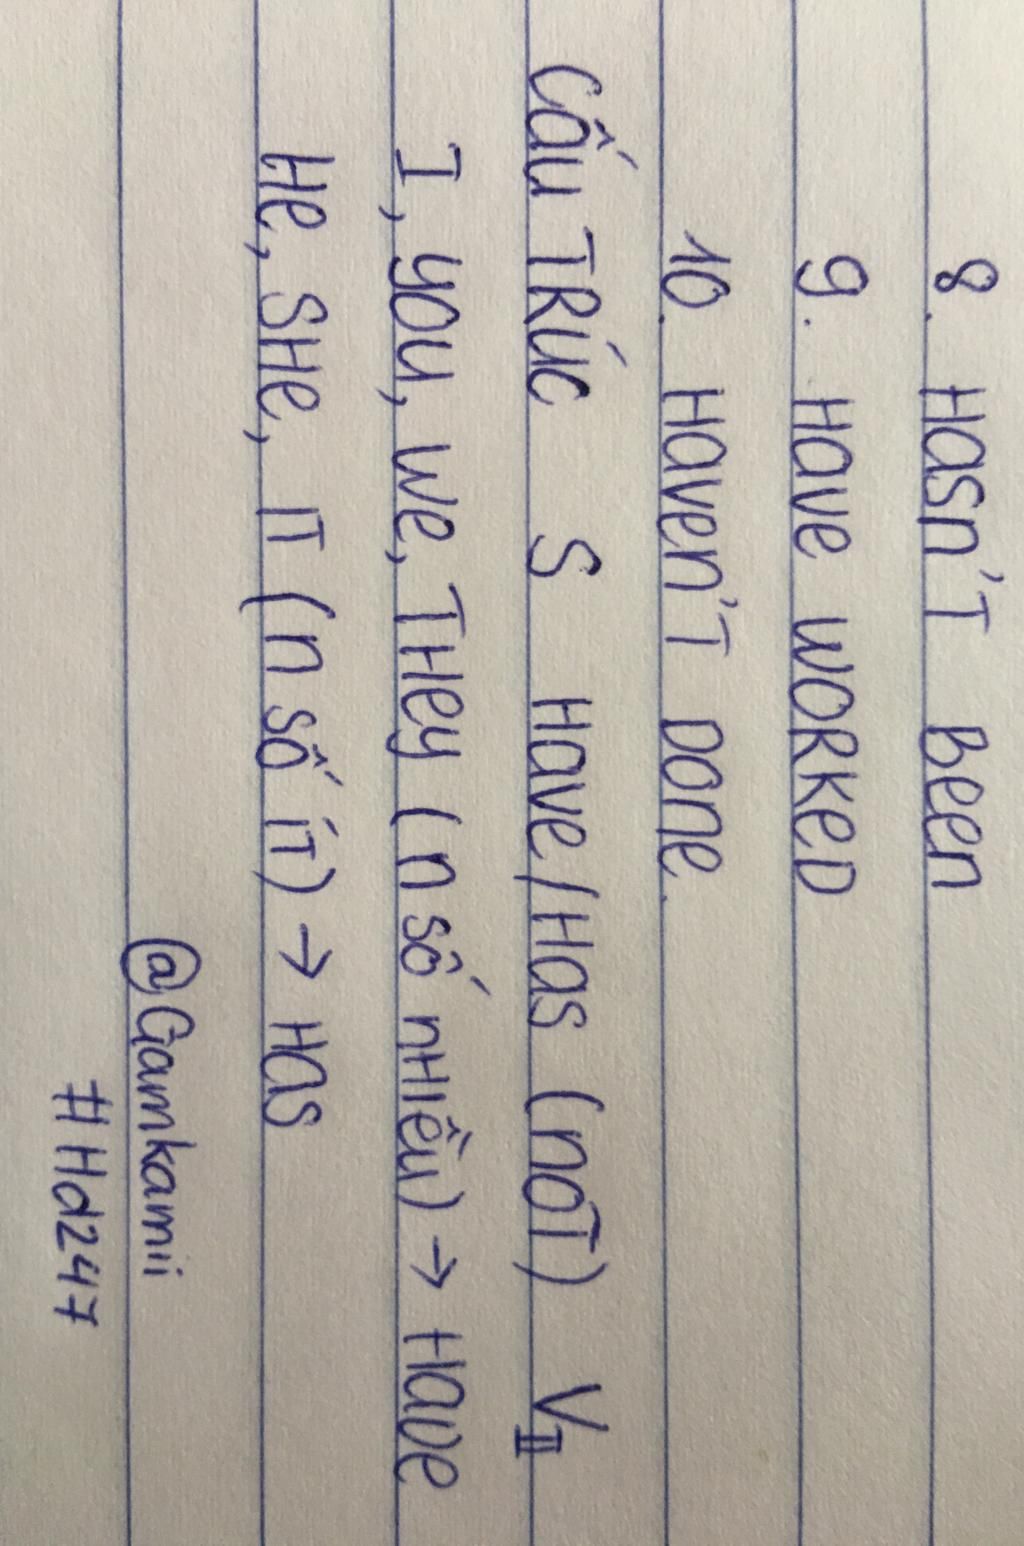 8. Hasn't Been
9. Have worked
10. Haven't Done.
Cấu trúc S Have/Has (not) VII
I, you, we, they (n số nhiều) → Have
He, she, it (n số ít) → Has
@Gamkamii
#Hd247